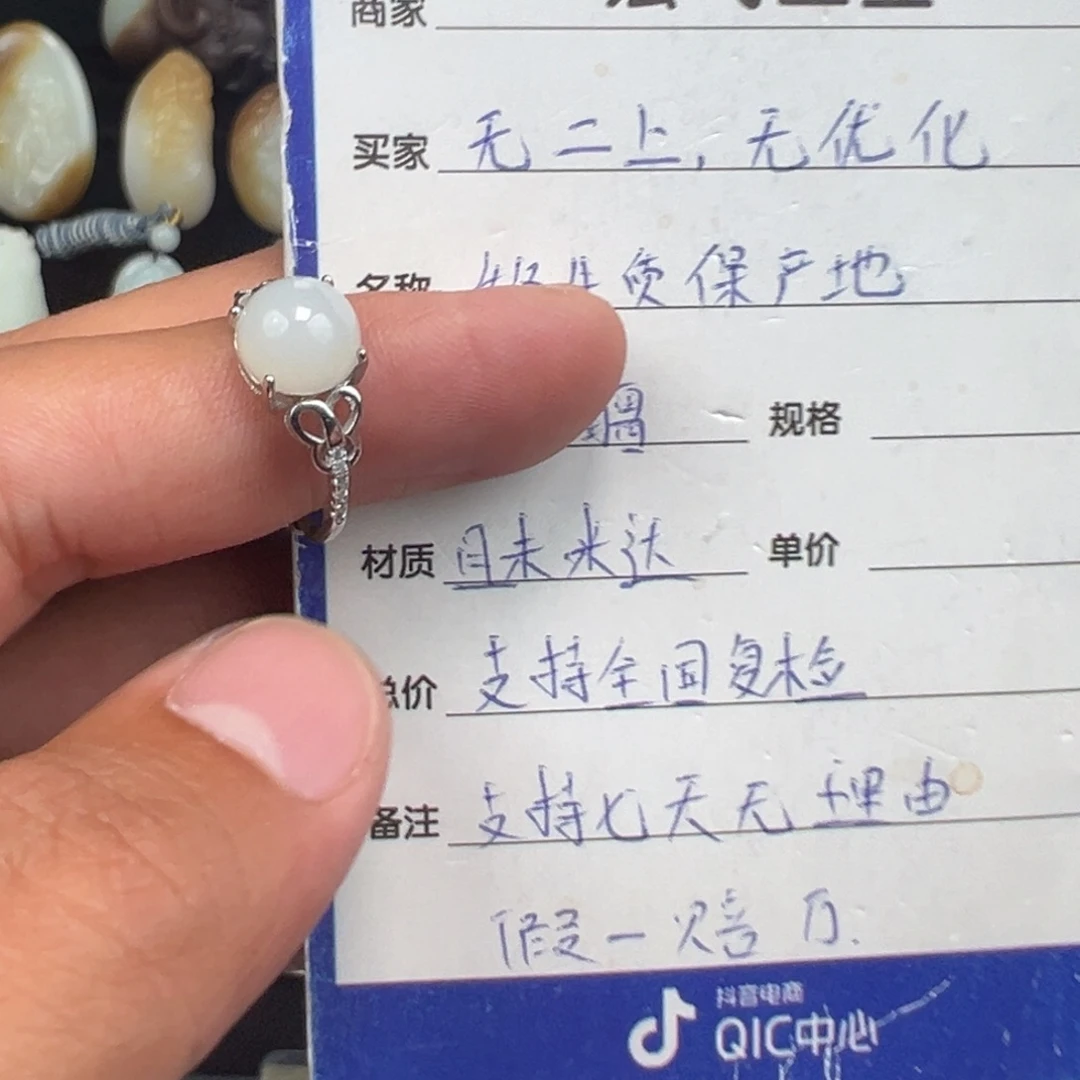 商家
买家 无二上,无优化
名称 质保产地
规格
材质 且末米达 单价
总价 支持全国复检
备注 支持七天无理由
假一赔万.
抖音电商
QIC中心